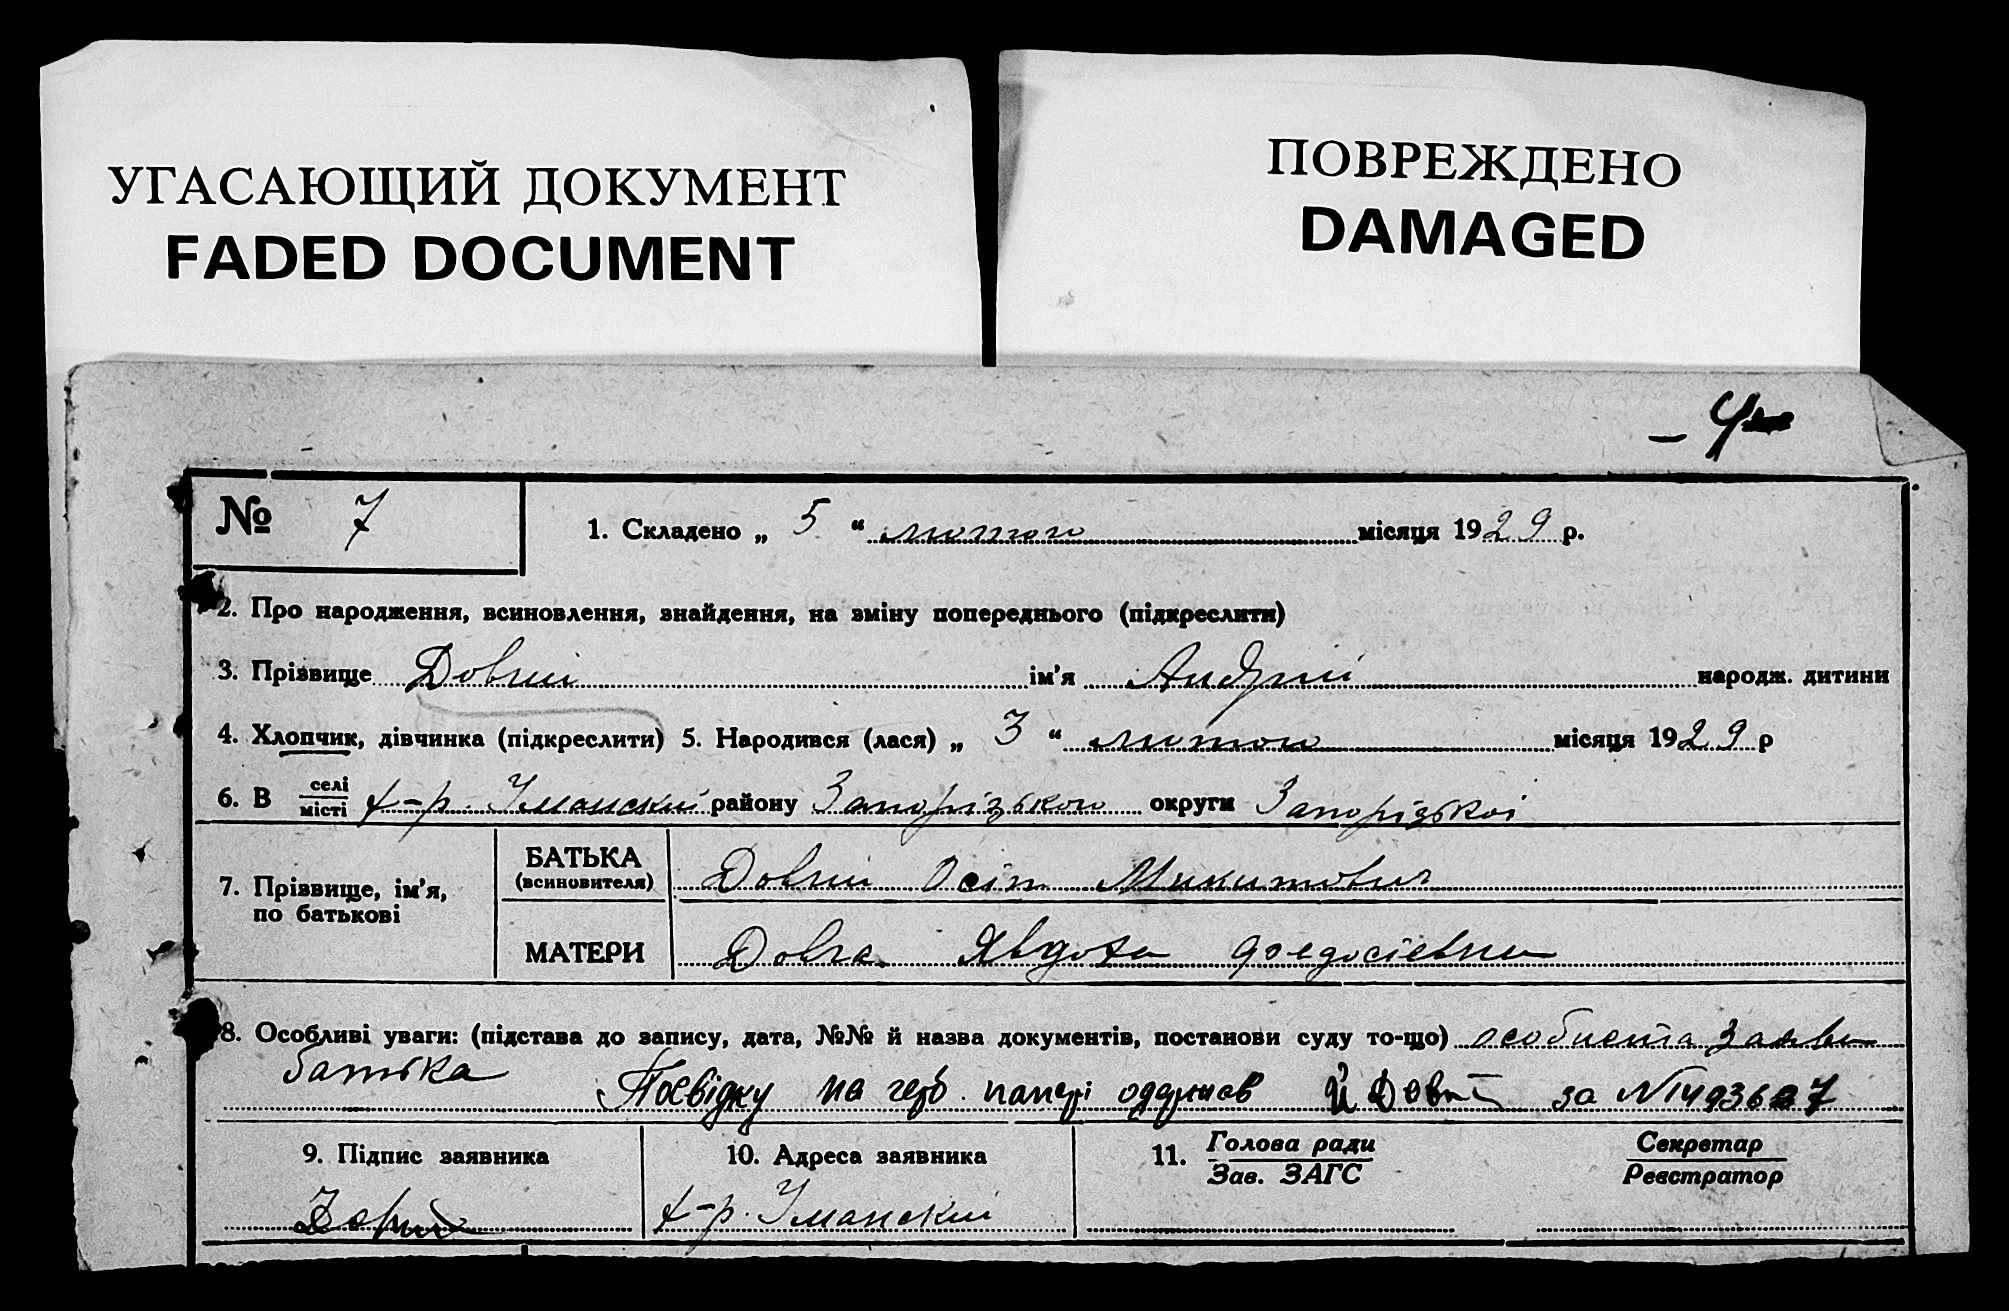 УГАСАЮЩИЙ ДОКУМЕНТ
FADED DOCUMENT
ПОВРЕЖДЕНО
DAMAGED
№ 7
1. Складено „ 5 “ лютого місяця 1929 р.
2. Про народження, всиновлення, знайдення, на зміну попереднього (підкреслити)
3. Прізвище Добрий ім’я Андрій народж. дитини
4. Хлопчик, дівчинка (підкреслити) 5. Народився (лася) „ 3 “ лютого місяця 1929 р
6. В селі місті х-р. Уманский району Запорізького округи Запорізкої
7. Прізвище, ім’я, по батькові
БАТЬКА (всиновителя) Добрий Осіп Микитович
МАТЕРИ Добра Явдоха Федосіевна
8. Особливі уваги: (підстава до запису, дата, №№ й назва документів, постанови суду то-що) особиста заява
батька Посвідку на герб. папері одержав за №
9. Підпис заявника
10. Адреса заявника
11. Голова ради
Зав. ЗАГС
Секретар
Реєстратор
х-р. Уманский